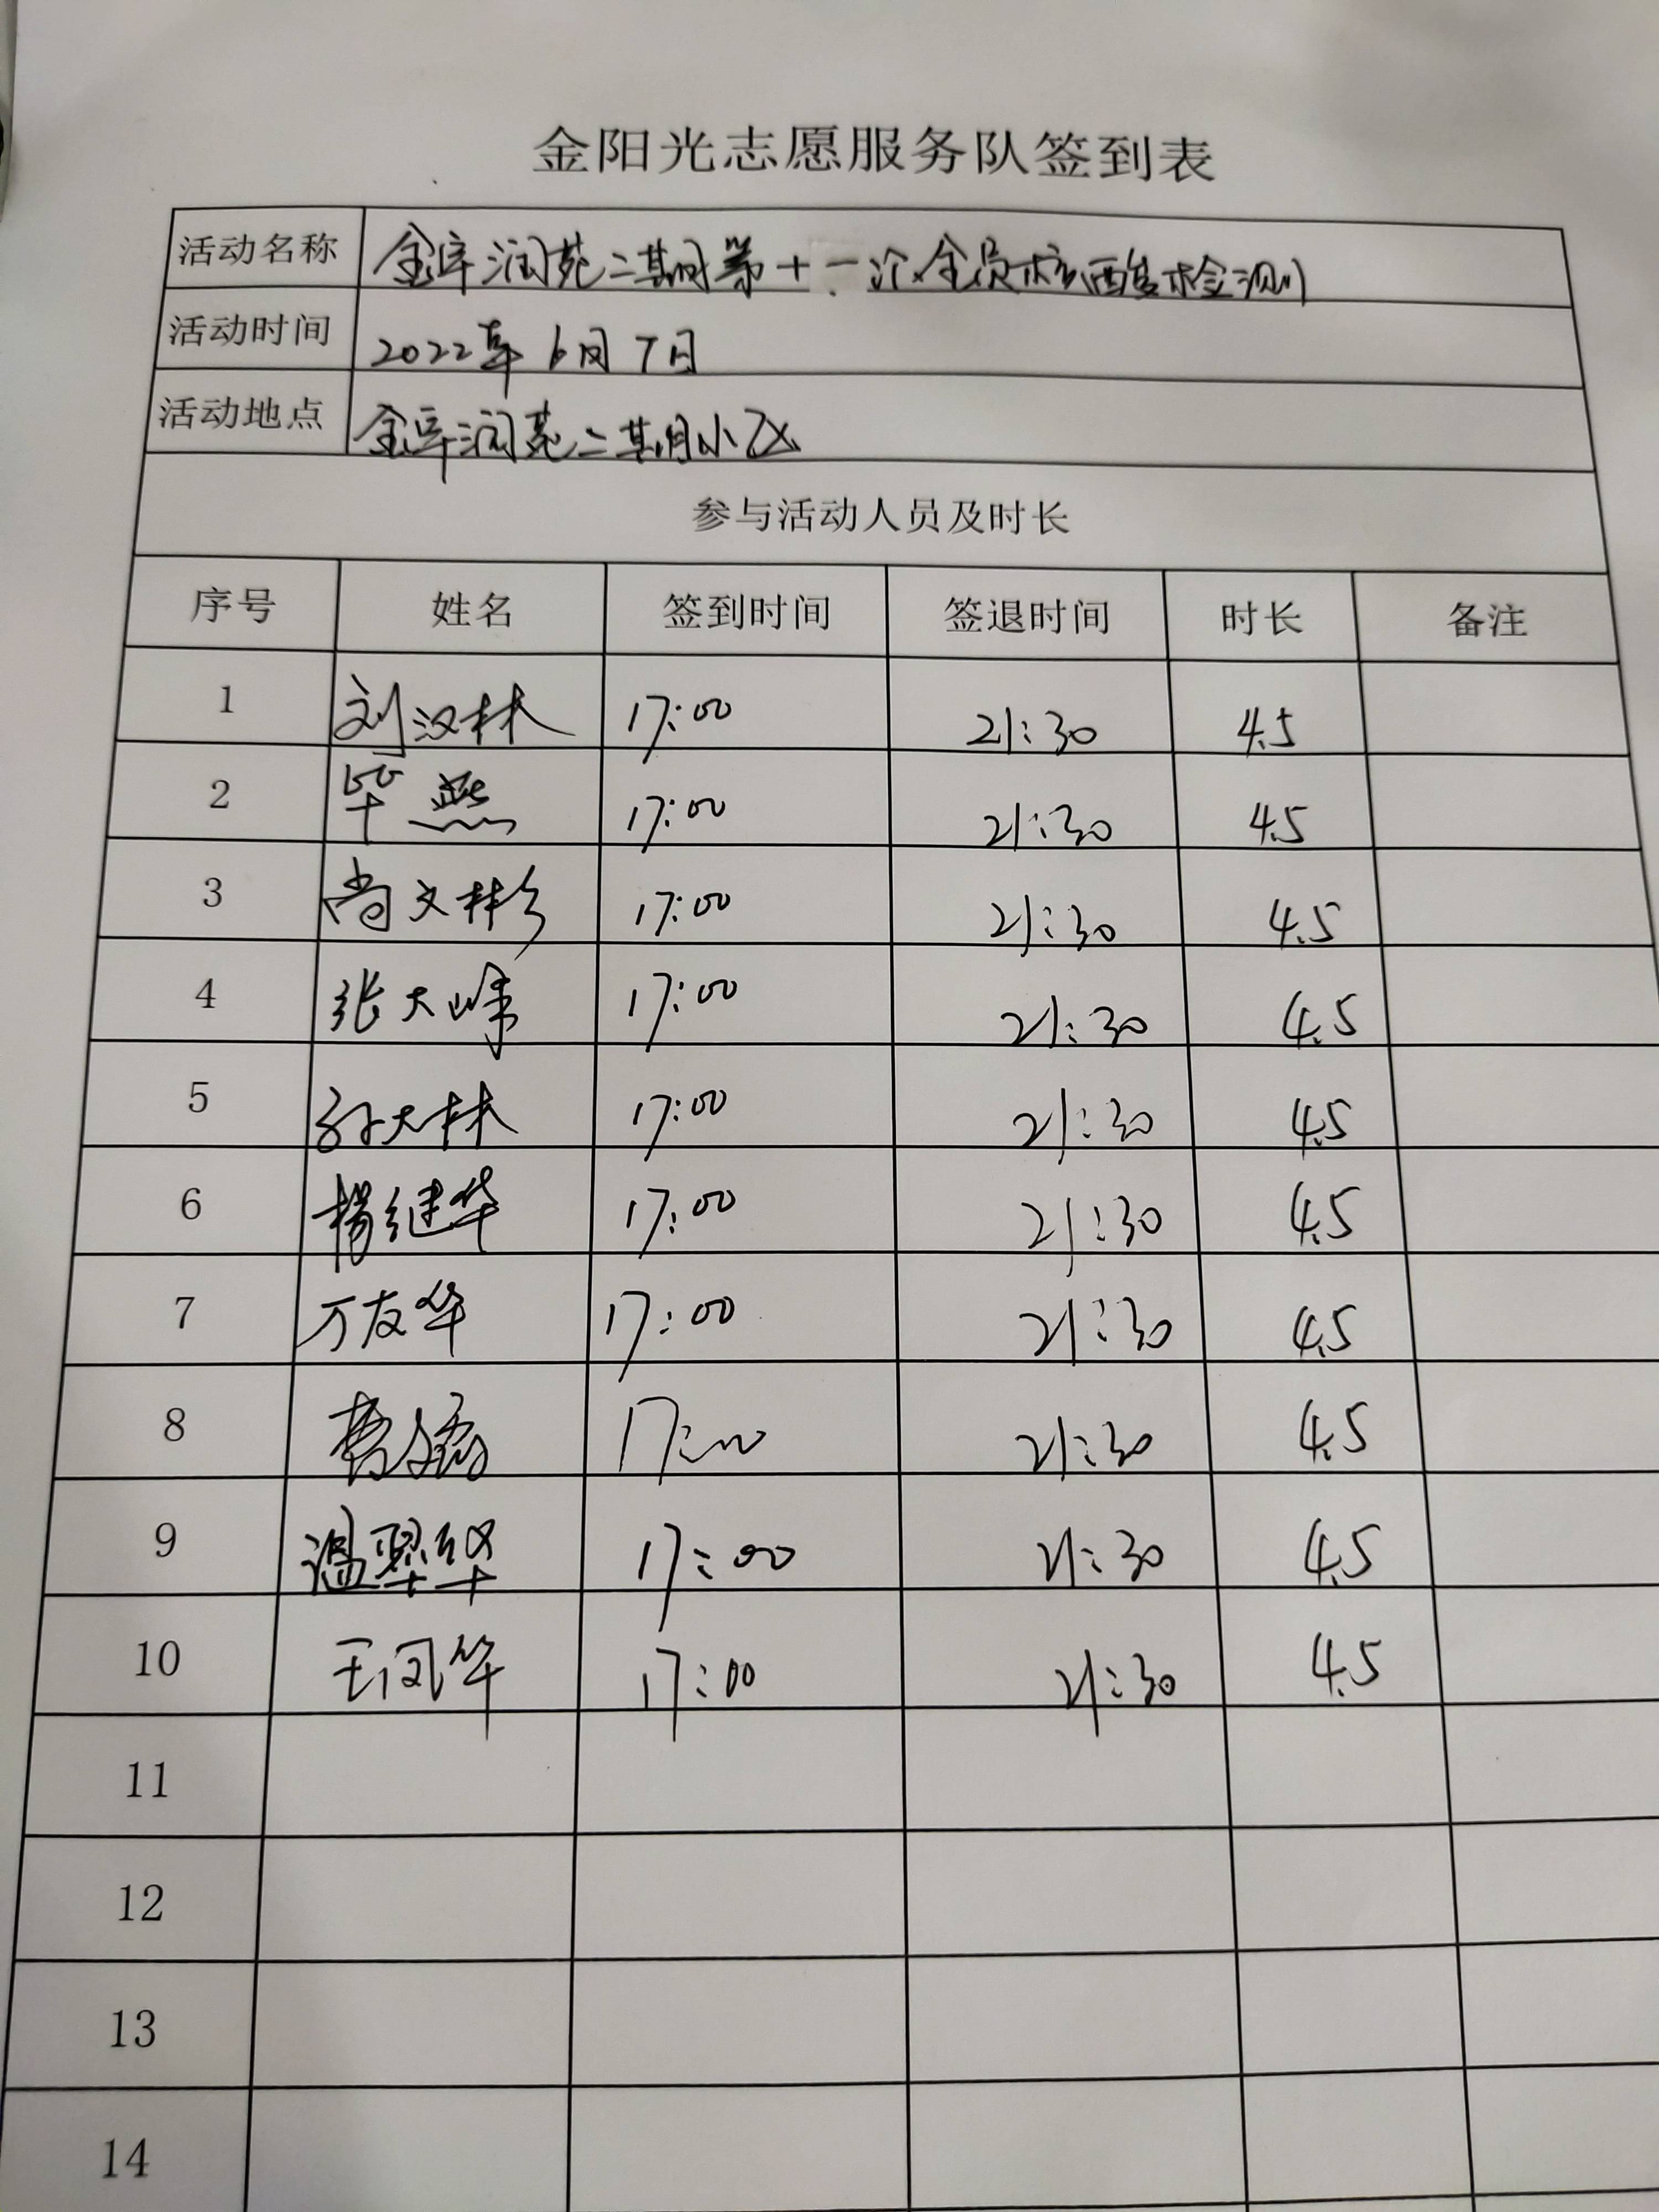 金阳光志愿服务队签到表
活动名称 金库润苑二期第十一次全员核酸检测
活动时间 2022年6月7日
活动地点 金库润苑二期小区
参与活动人员及时长
序号 姓名 签到时间 签退时间 时长 备注
1 刘汉林 17:00 21:30 4.5
2 毕燕 17:00 21:30 4.5
3 尚文彬 17:00 21:30 4.5
4 张大峰 17:00 21:30 4.5
5 孙大林 17:00 21:30 4.5
6 杨继华 17:00 21:30 4.5
7 万友华 17:00 21:30 4.5
8 17:00 21:30 4.5
9 温翠华 17:00 21:30 4.5
10 王凤华 17:00 21:30 4.5
11
12
13
14